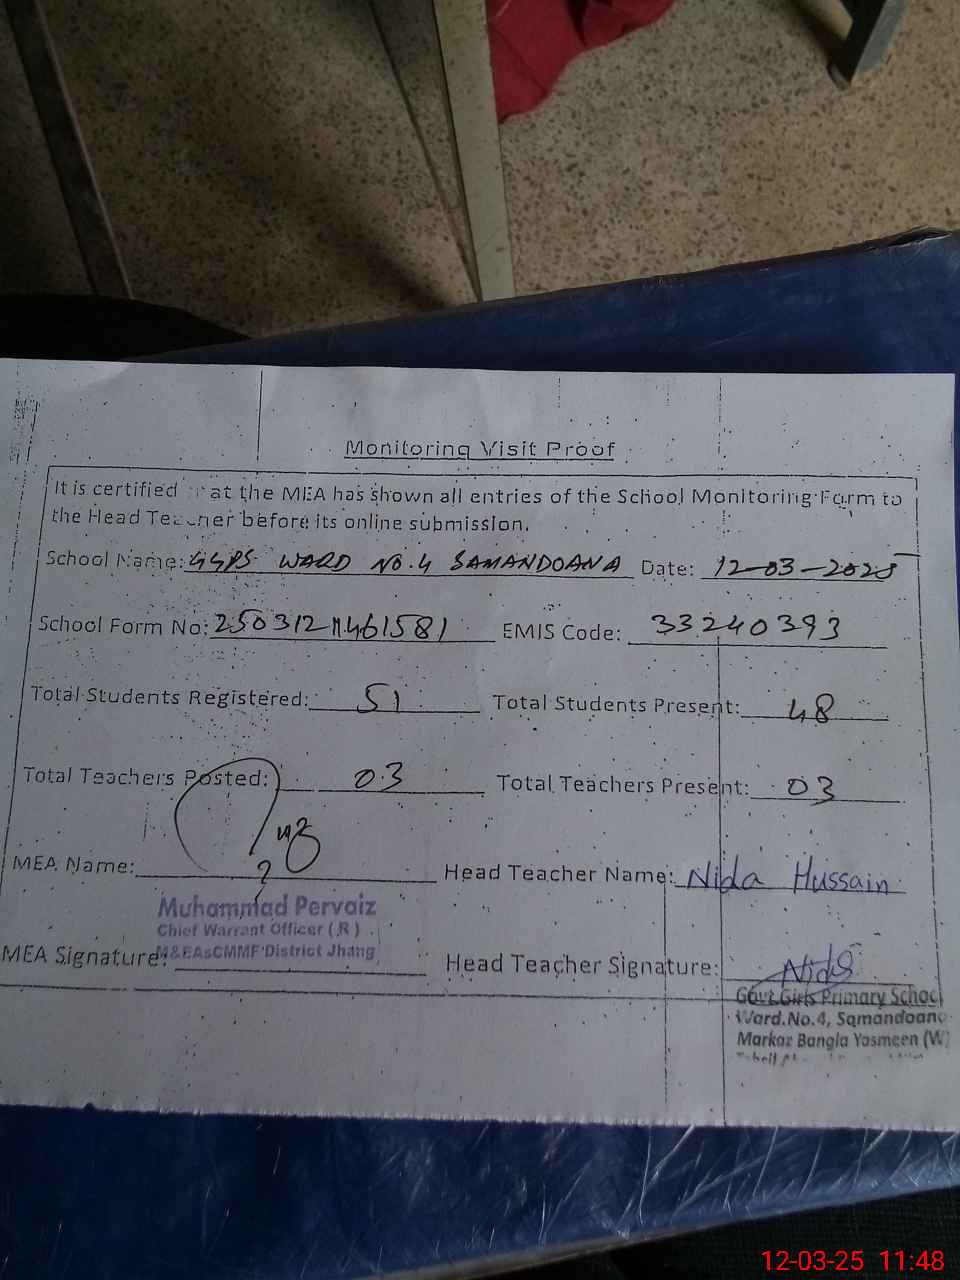 Monitoring Visit Proof
It is certified at the MEA has shown all entries of the School Monitoring Form to
the Head Teacher before its online submission.
School Name: GGPS WARD NO.4 SAMANDOANA Date: 12-03-2025
School Form No: EMIS Code: 33240393
Total Students Registered: 51 Total Students Present: 48
Total Teachers Posted: 03 Total Teachers Present: 03
MEA Name: Head Teacher Name: Nida Hussain
Muhammad Pervaiz
Chief Warrant Officer (R)
M&EAsCMMF District Jhang
MEA Signature: Head Teacher Signature: Nida
Govt.Girls Primary School
Ward.No.4, Samandoana
Markaz Bangla Yasmeen (W)
12-03-25 11:48